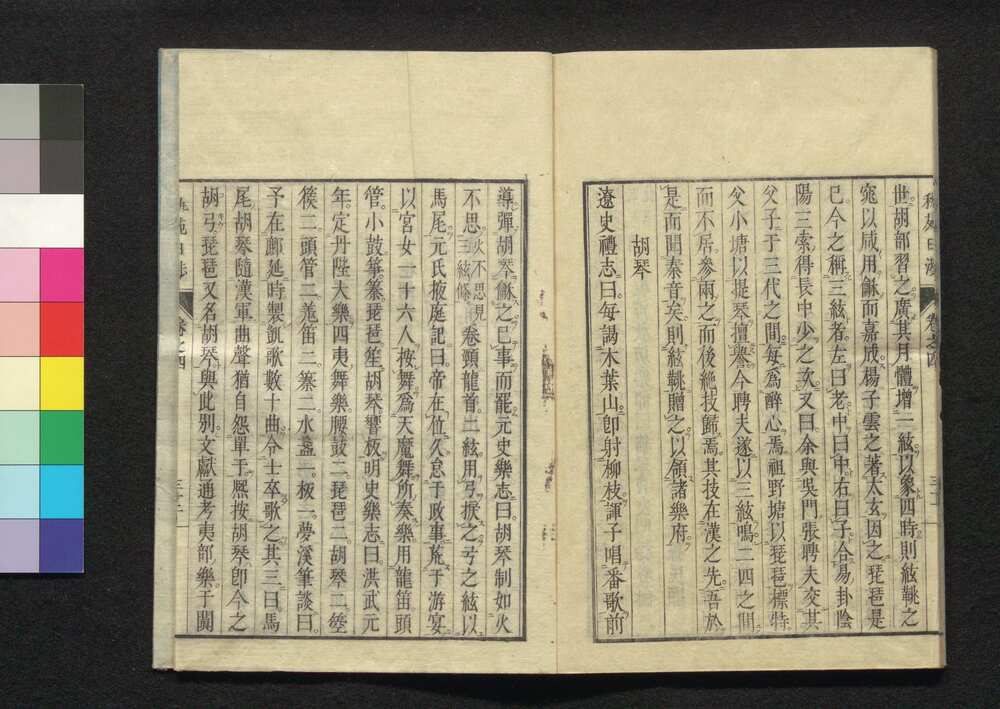 世。胡部習之廣其月體增一絃以象四時則絃鞉之
寃以咸用龢而嘉成。楊子雲之著太玄因之琵琶是
已今之稱三絃者。左曰老中曰中右曰子合易卦陰
陽三索得長中少之次。又曰余與吳門張聘夫交其
父子于三代之間。每爲醉心焉祖野塘以琵琶標特
父小塘以提琴擅譽今聘夫遂以三絃鳴二四之間
而不居參兩之而後絶技歸焉其技在漢之先。吾於
是而聞秦音矣則絃鞉贈之以領諸樂府。
胡琴
遼史禮志曰每謁木葉山。卽射柳枝。諢子唱番歌前
導彈胡琴龢之已事而罷元史樂志曰。胡琴制如火
不思。火不思見三絃條卷頸龍首。二絃用弓捩之弓之絃以
馬尾元氏掖庭記曰。帝在位久怠于政事荒于游宴
以宮女一十六人按舞爲天魔舞所奏樂用龍笛頭
管。小鼓箏。䇲琵琶笙胡琴響板明史樂志曰。洪武元
年。定丹陛大樂四夷舞樂。腰鼓二琵琶二胡琴二箜
篌二。頭管二羗笛二䇲二。水盞一。板一。夢溪筆談曰。
予在鄜延時製凱歌數十曲。令士卒歌之其三曰馬
尾胡琴隨漢車曲聲猶自怨單于熈按胡琴卽今之
胡弓。琵琶又名胡琴。與此别。文獻通考夷部樂。于闐
卷之四